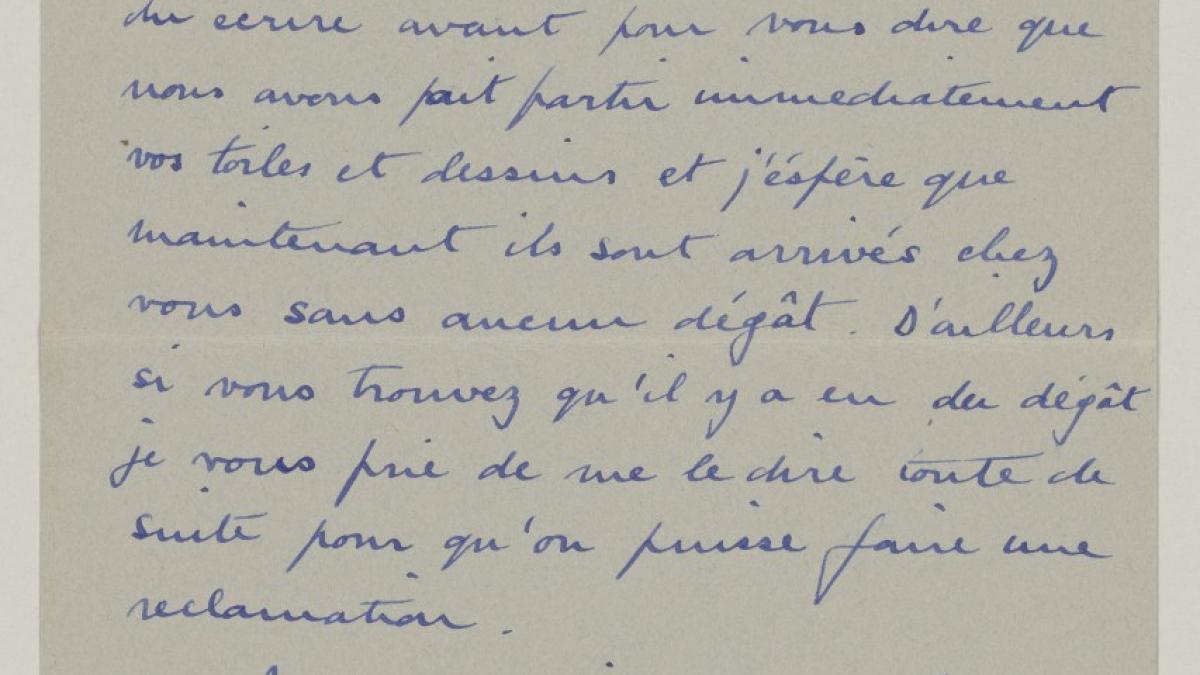 du ecrire avant pour vous dire que
nous avons fait partir immediatement
vos toiles et dessins et j'éspère que
maintenant ils sont arrivés chez
vous sans aucun dégât. D'ailleurs
si vous trouvez qu'il y a eu du dégât
je vous prie de me le dire toute de
suite pour qu'on puisse faire une
reclamation.